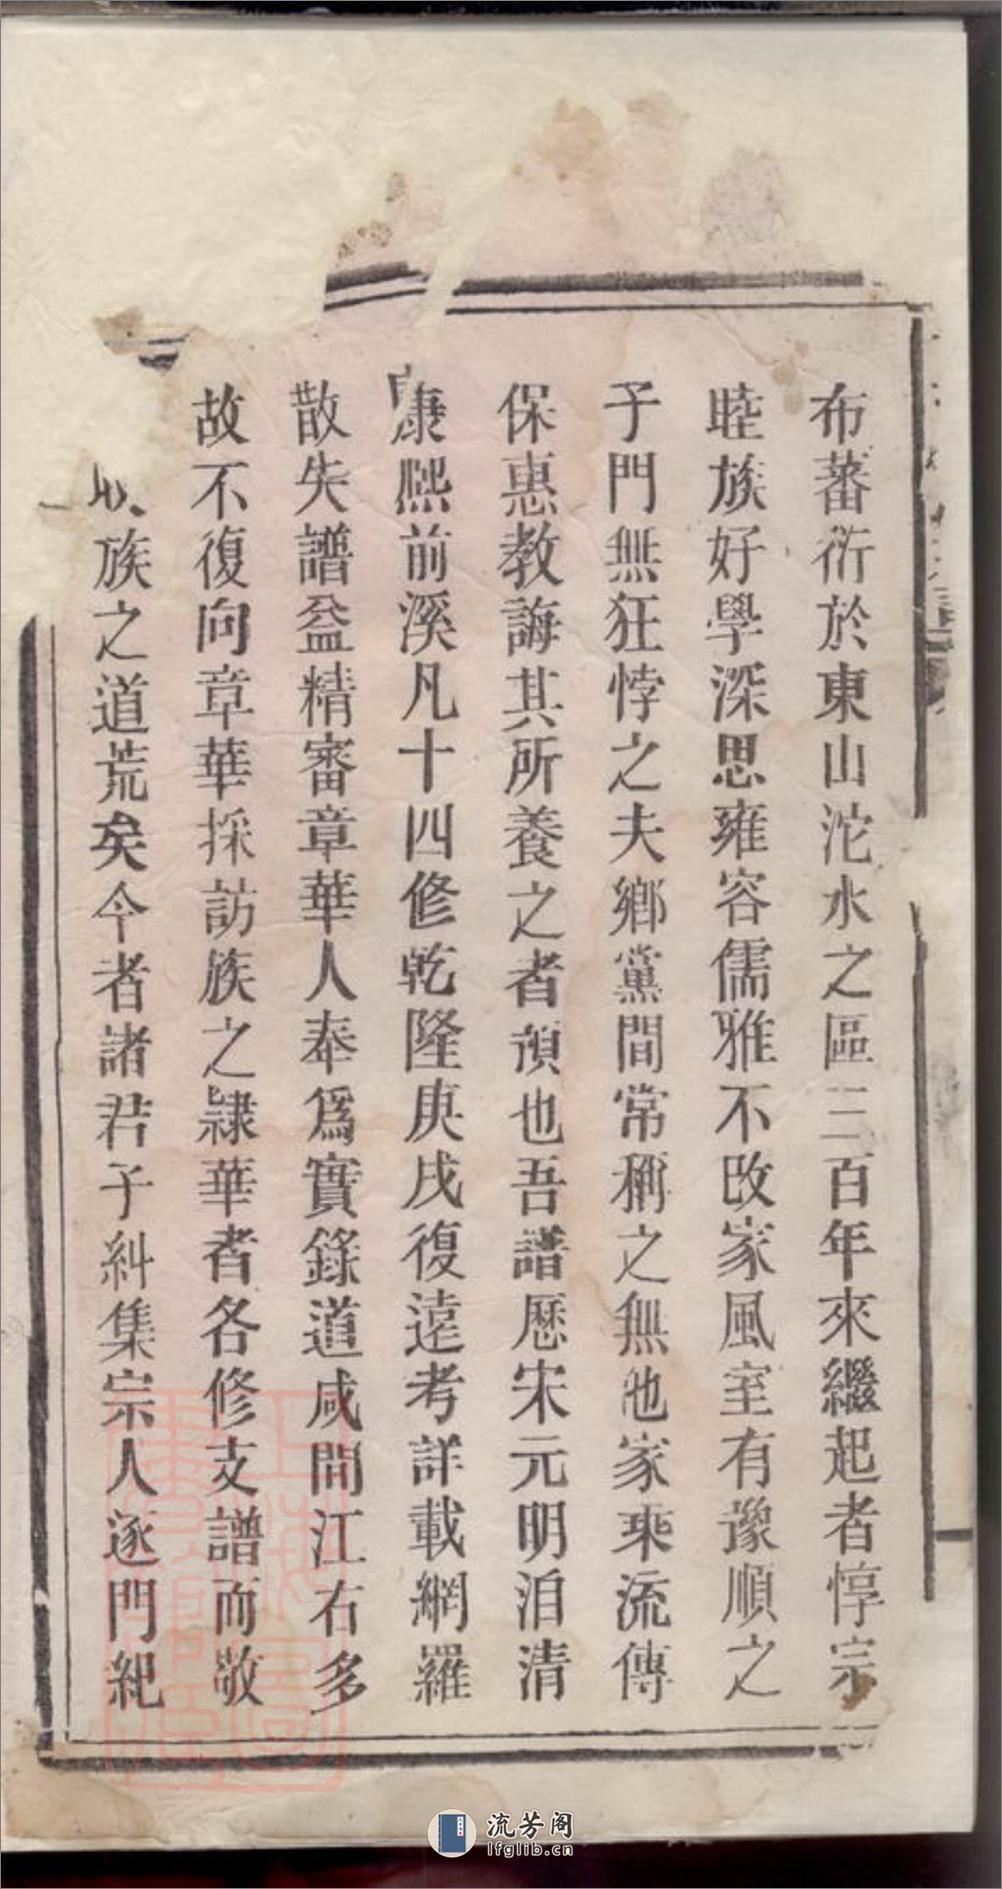 布蕃衍於東山沱水之區三百年來繼起者惇宗
睦族好學深思雍容儒雅不改家風室有豫順之
子門無狂悖之夫鄉黨間常稱之無他家乘流傳
保惠教誨其所養之者預也吾譜歷宋元明洎清
康熙前溪凡十四修乾隆庚戌復遠考詳載網羅
散失譜益精審章華人奉為實錄道咸間江右多
故不復向章華採訪族之隸華者各修支譜而敬
族之道荒矣今者諸君子糾集宗人逐門紀
流芳阁
lfglib.cn